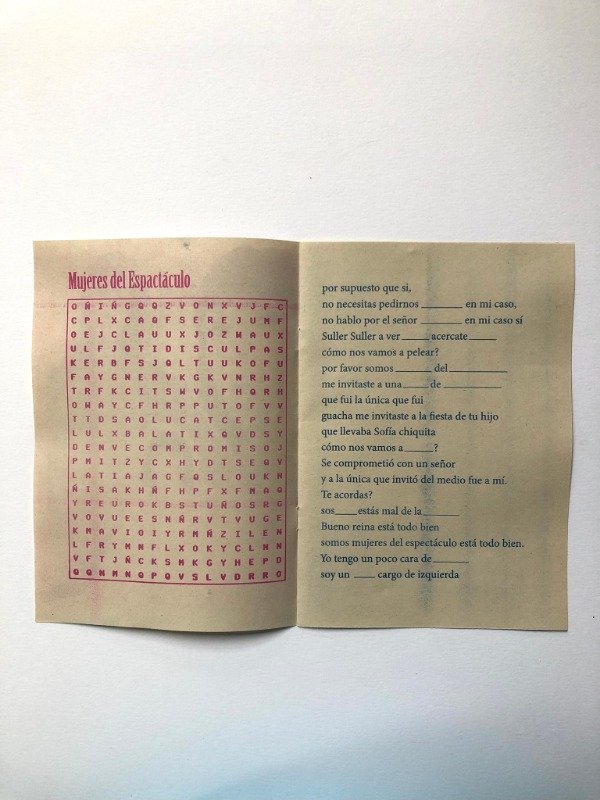 Mujeres del Espactáculo
O Ñ I Ñ G Q Q Z V O N X V J F C
C P L X C A Q F S E R E J U M F
O E J C L A U U X J O Z W A U X
U L F J Q T I D I S C U L P A S
K E R B F S J Q L T U U K O F U
F A Y G N E R V K G K V N R H Z
T R F K C I T S W V O F H Q R H
O W A Y C F H R P P U T O F V V
T T D S A O L U C A T C E P S E
L U L X B A L A T I X Q V D S Y
D E N V E C O M P R O M I S O J
P M I T Z Y C X H Y D T S E Q V
L A T I A J A G F Q S L O U K N
Ñ I S A K H Ñ F H P F X F M A Q
Y R E U R O K B S T U Ñ O S R G
V O V U E E S N Ñ R V T V U G E
K M A V I O I Y R M Ñ Z I L E N
L F R Y M N F L X O K Y C L N N
V F T J Ñ C K S M K G Y H E P D
Q Q N M N Q P Q V S L V D R R O
por supuesto que si,
no necesitas pedirnos ________ en mi caso,
no hablo por el señor ________ en mi caso sí
Suller Suller a ver _____ acercate _____
cómo nos vamos a pelear?
por favor somos _______ del ___________
me invitaste a una _____ de ___________
que fui la única que fui
guacha me invitaste a la fiesta de tu hijo
que llevaba Sofía chiquita
cómo nos vamos a _____?
Se comprometió con un señor
y a la única que invitó del medio fue a mí.
Te acordas?
sos ____ estás mal de la _______
Bueno reina está todo bien
somos mujeres del espectáculo está todo bien.
Yo tengo un poco cara de _______
soy un ____ cargo de izquierda